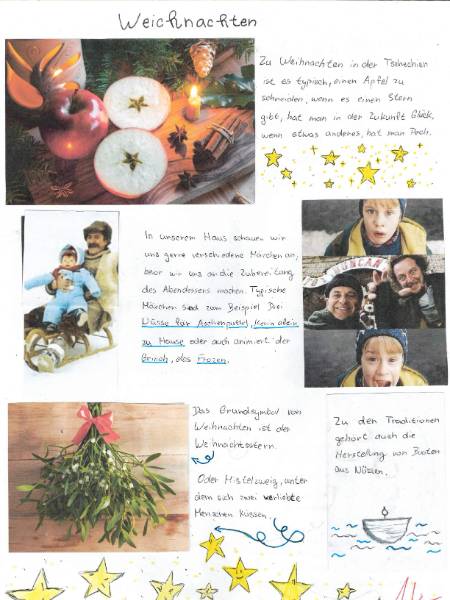 Weichnachten
Zu Weihnachten in der Tschechien
ist es typisch, einen Apfel zu
schneiden, wenn es einen Stern
gibt, hat man in der Zukunft Glück,
wenn etwas anderes, hat man Pech.
In unserem Haus schauen wir
uns gerne verschiedene Märchen an,
bevor wir uns an die Zubereitung
des Abendessens machen. Typische
Märchen sind zum Beispiel Drei
Nüsse für Aschenputtel, Kevin allein
zu Hause oder auch animiert der
Grinch, des Frozen.
DUNCAN
Das Grundsymbol von
Weihnachten ist der
Weihnachtsstern.
Oder Mistelzweig, unter
dem sich zwei verliebte
Menschen küssen.
Zu den Traditionen
gehört auch die
Herstellung von Booten
aus Nüssen.